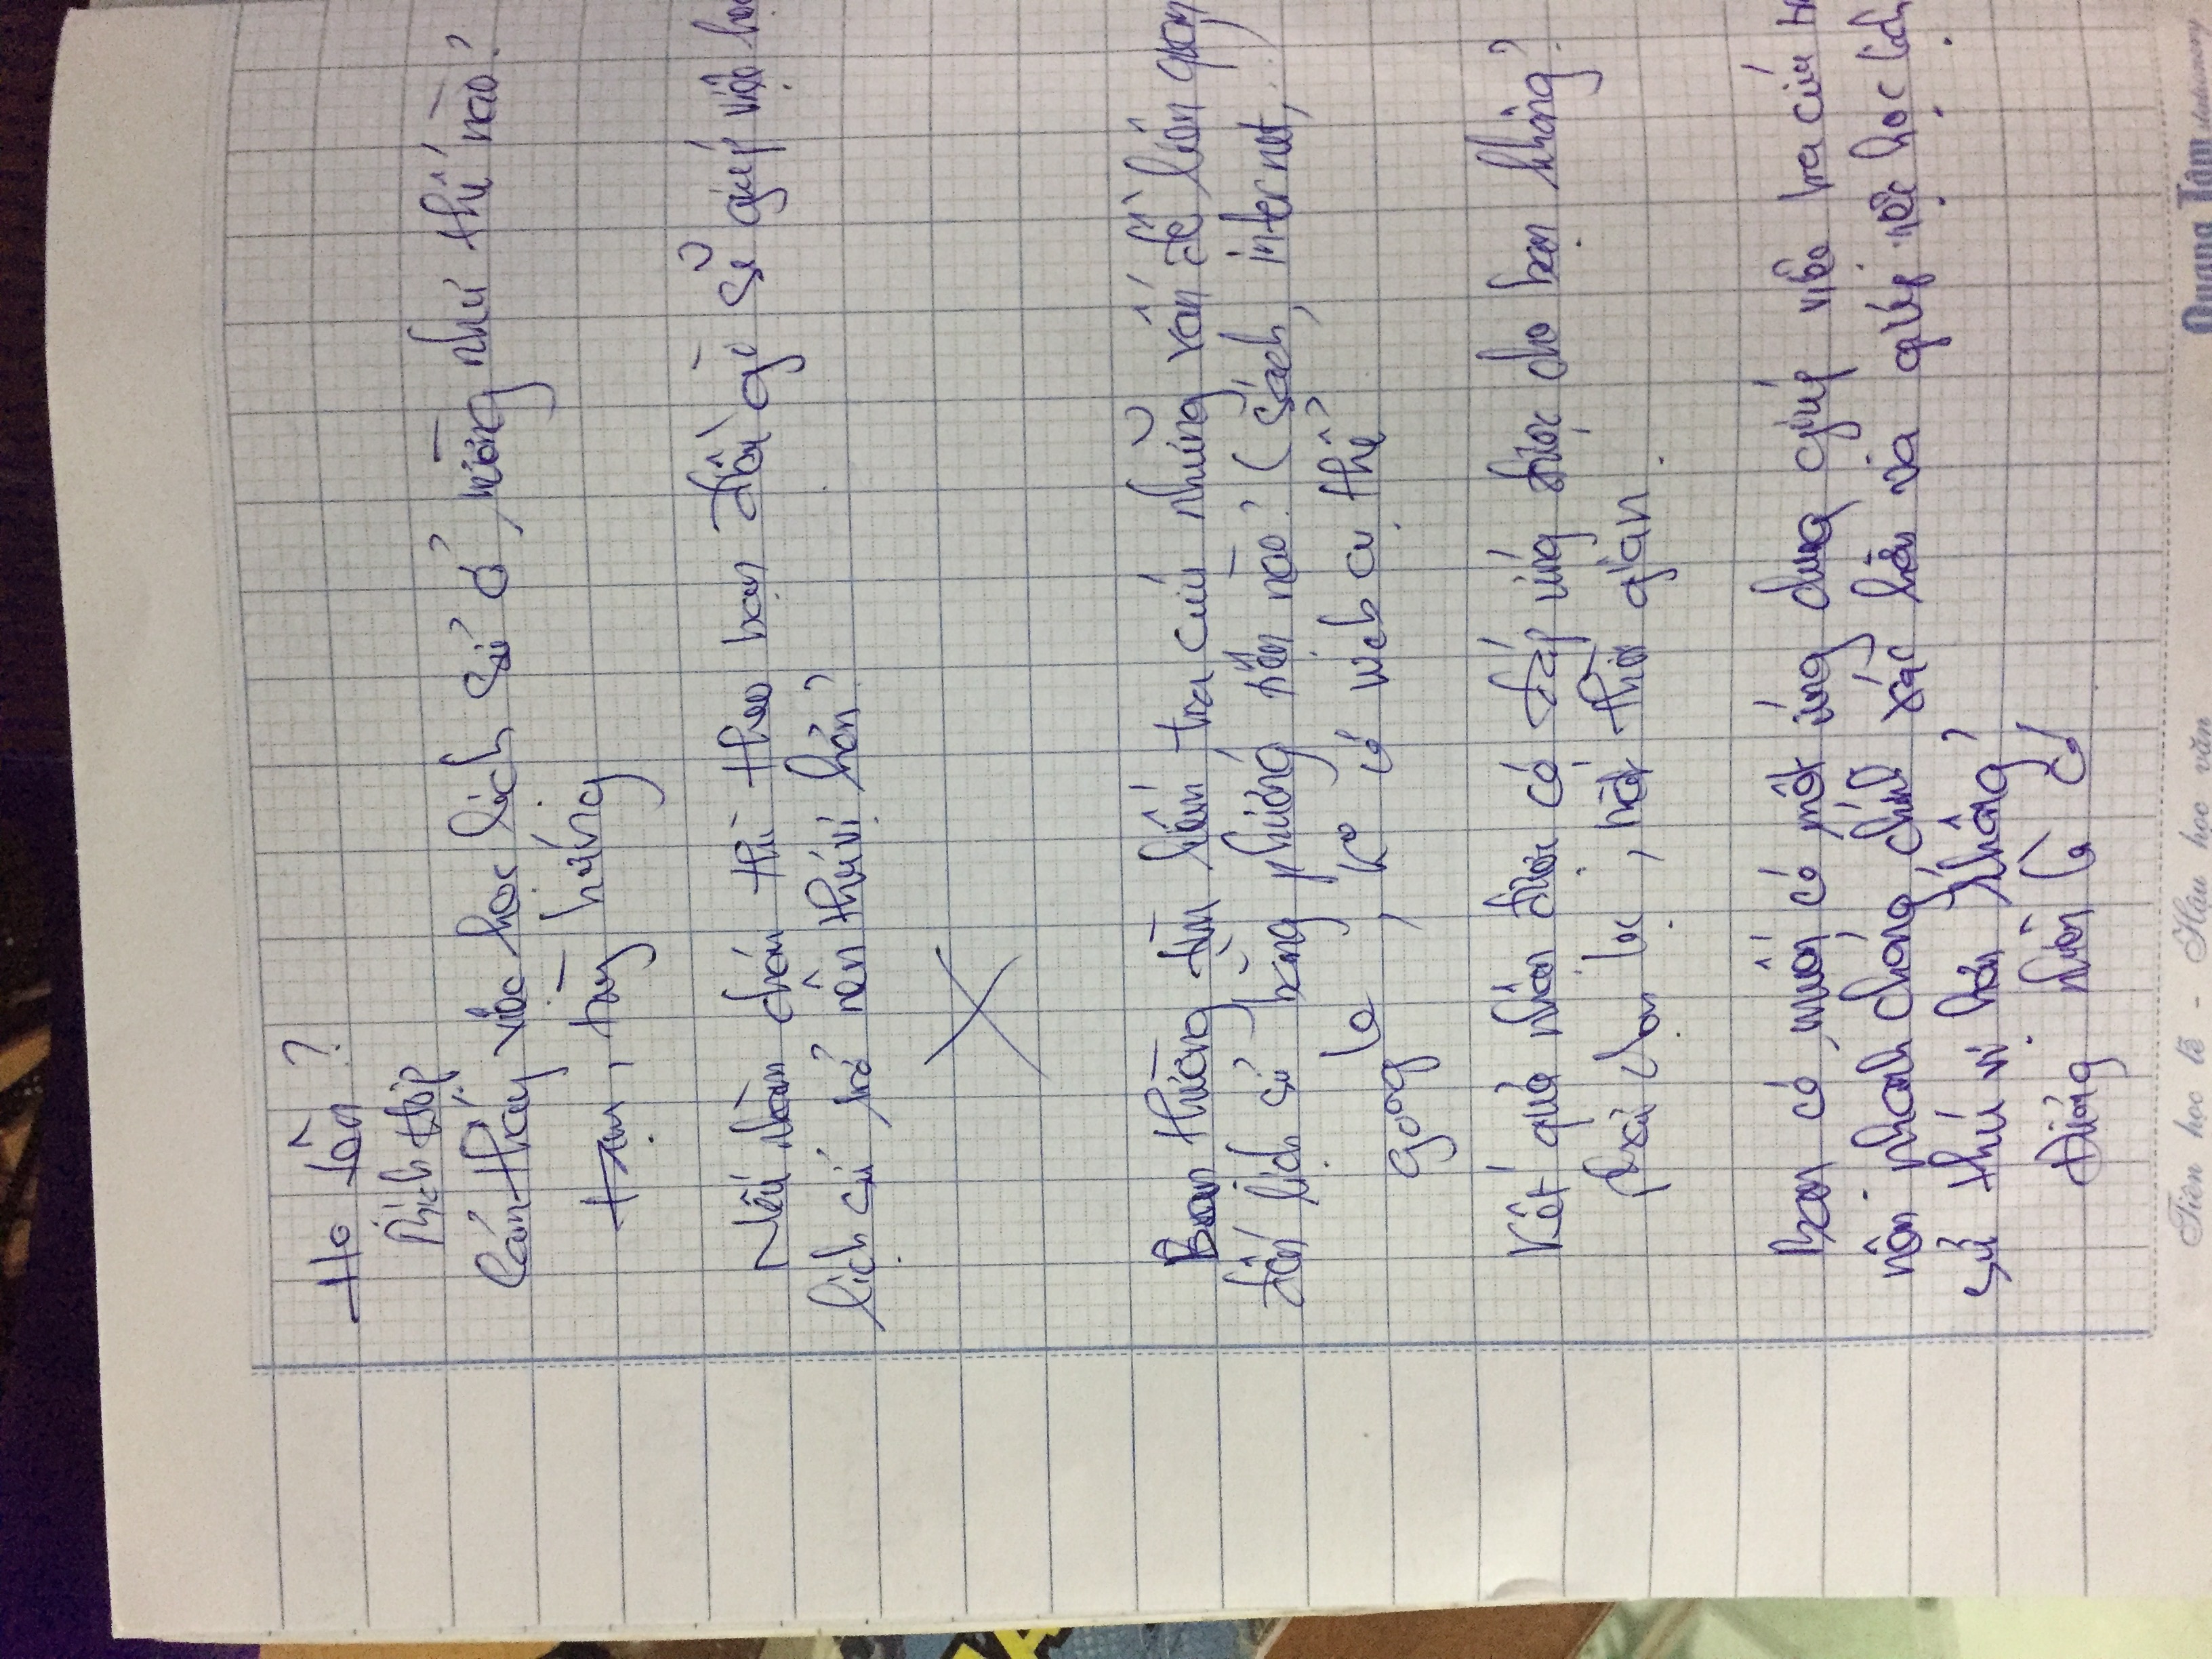 Họ tên?
Bích Hợp
Cảm thấy việc học lịch sử ở trường như thế nào?
tạm, tùy hứng
Nếu nhàm chán thì theo bạn điều gì sẽ giúp việc học
lịch sử trở nên thú vị hơn?
Bạn thường tìm kiếm, tra cứu những vấn đề liên quan
đến lịch sử bằng phương tiện nào? (sách, internet, ..)
google, ko có web cụ thể
Kết quả nhận được có đáp ứng được cho bạn không?
phải chọn lọc, mất thời gian
Bạn có muốn có một ứng dụng giúp việc tra cứu tr
nên nhanh chóng, chính xác hơn và giúp việc học lịch
sử thú vị hơn không?
Đương nhiên là có
Tiên học lễ - Hậu học văn
Quang Tâm stationery